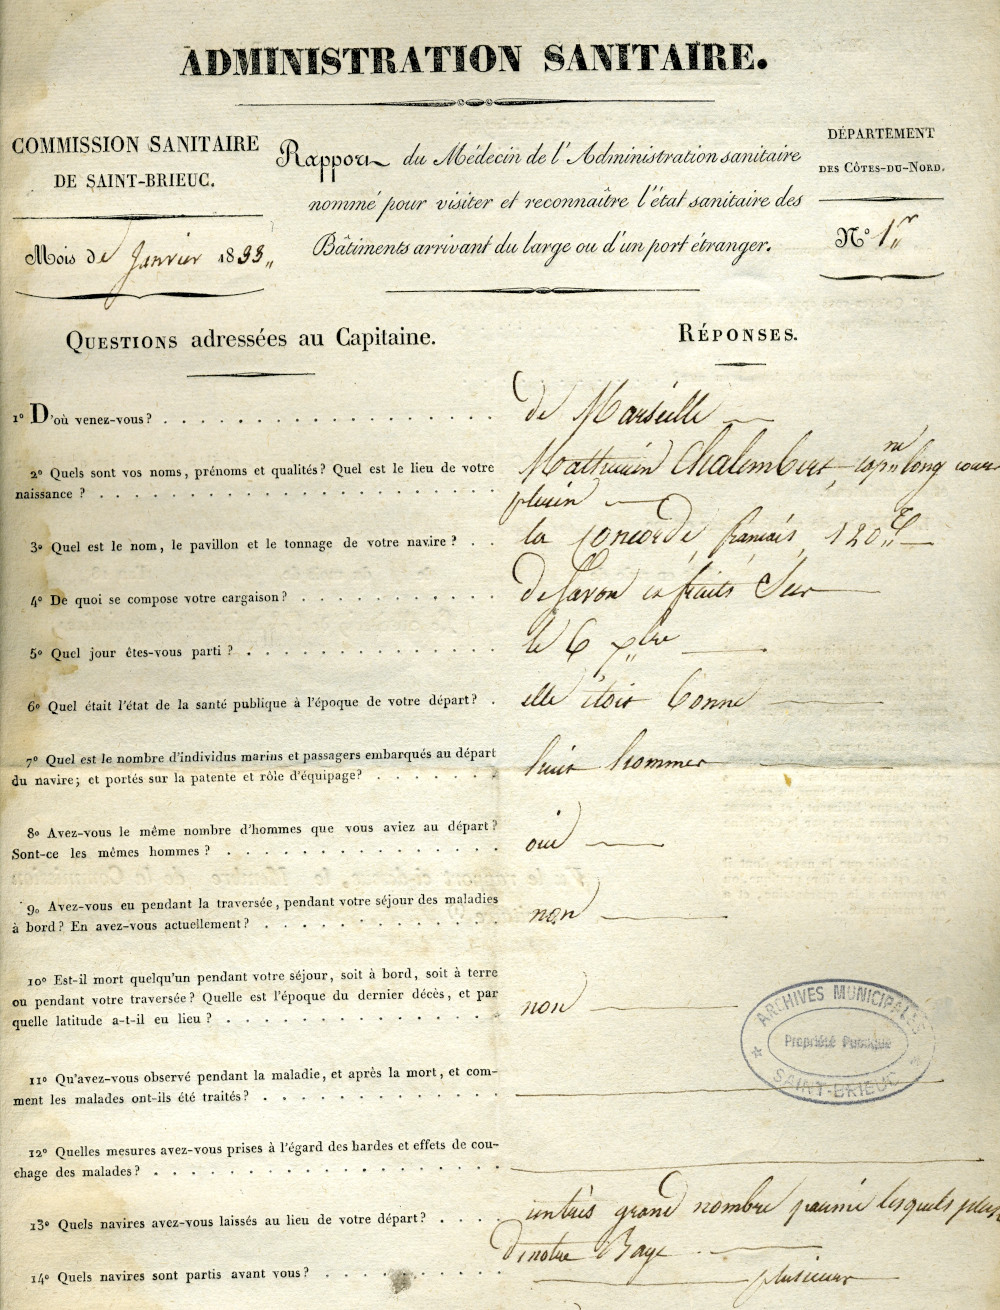 ADMINISTRATION SANITAIRE.
COMMISSION SANITAIRE
DE SAINT-BRIEUC.
Mois de Janvier 1833
Rapport du Médecin de l'Administration sanitaire
nommé pour visiter et reconnaître l'état sanitaire des
Bâtiments arrivant du large ou d'un port étranger.
DÉPARTEMENT
DES CÔTES-DU-NORD.
N° 1er
QUESTIONS adressées au Capitaine.
RÉPONSES.
1° D'où venez-vous ?
de Marseille
2° Quels sont vos noms, prénoms et qualités ? Quel est le lieu de votre
naissance ?
Mathurin Chalembert cap.ne long cours
3e Quel est le nom, le pavillon et le tonnage de votre navire ?
la Concorde, francais, 120
4° De quoi se compose votre cargaison ?
De Savon et fruits Sec
5° Quel jour êtes-vous parti ?
le 6 7bre
6° Quel était l'état de la santé publique à l'époque de votre départ ?
elle étoit bonne
7° Quel est le nombre d'individus marins et passagers embarqués au départ
du navire ; et portés sur la patente et rôle d'équipage ?
huit hommes
8° Avez-vous le même nombre d'hommes que vous aviez au départ ?
Sont-ce les mêmes hommes ?
oui
9° Avez-vous eu pendant la traversée, pendant votre séjour des maladies
à bord ? En avez-vous actuellement ?
non
10° Est-il mort quelqu'un pendant votre séjour, soit à bord, soit à terre
ou pendant votre traversée ? Quelle est l'époque du dernier décès, et par
quelle latitude a-t-il eu lieu ?
non
ARCHIVES MUNICIPALES
Propriété Publique
SAINT-BRIEUC
11° Qu'avez-vous observé pendant la maladie, et après la mort, et com-
ment les malades ont-ils été traités ?
12° Quelles mesures avez-vous prises à l'égard des hardes et effets de cou-
chage des malades ?
13° Quels navires avez-vous laissés au lieu de votre départ ?
un très grand nombre parmi lesquels plus
De notre Baye
14° Quels navires sont partis avant vous ?
plusieurs